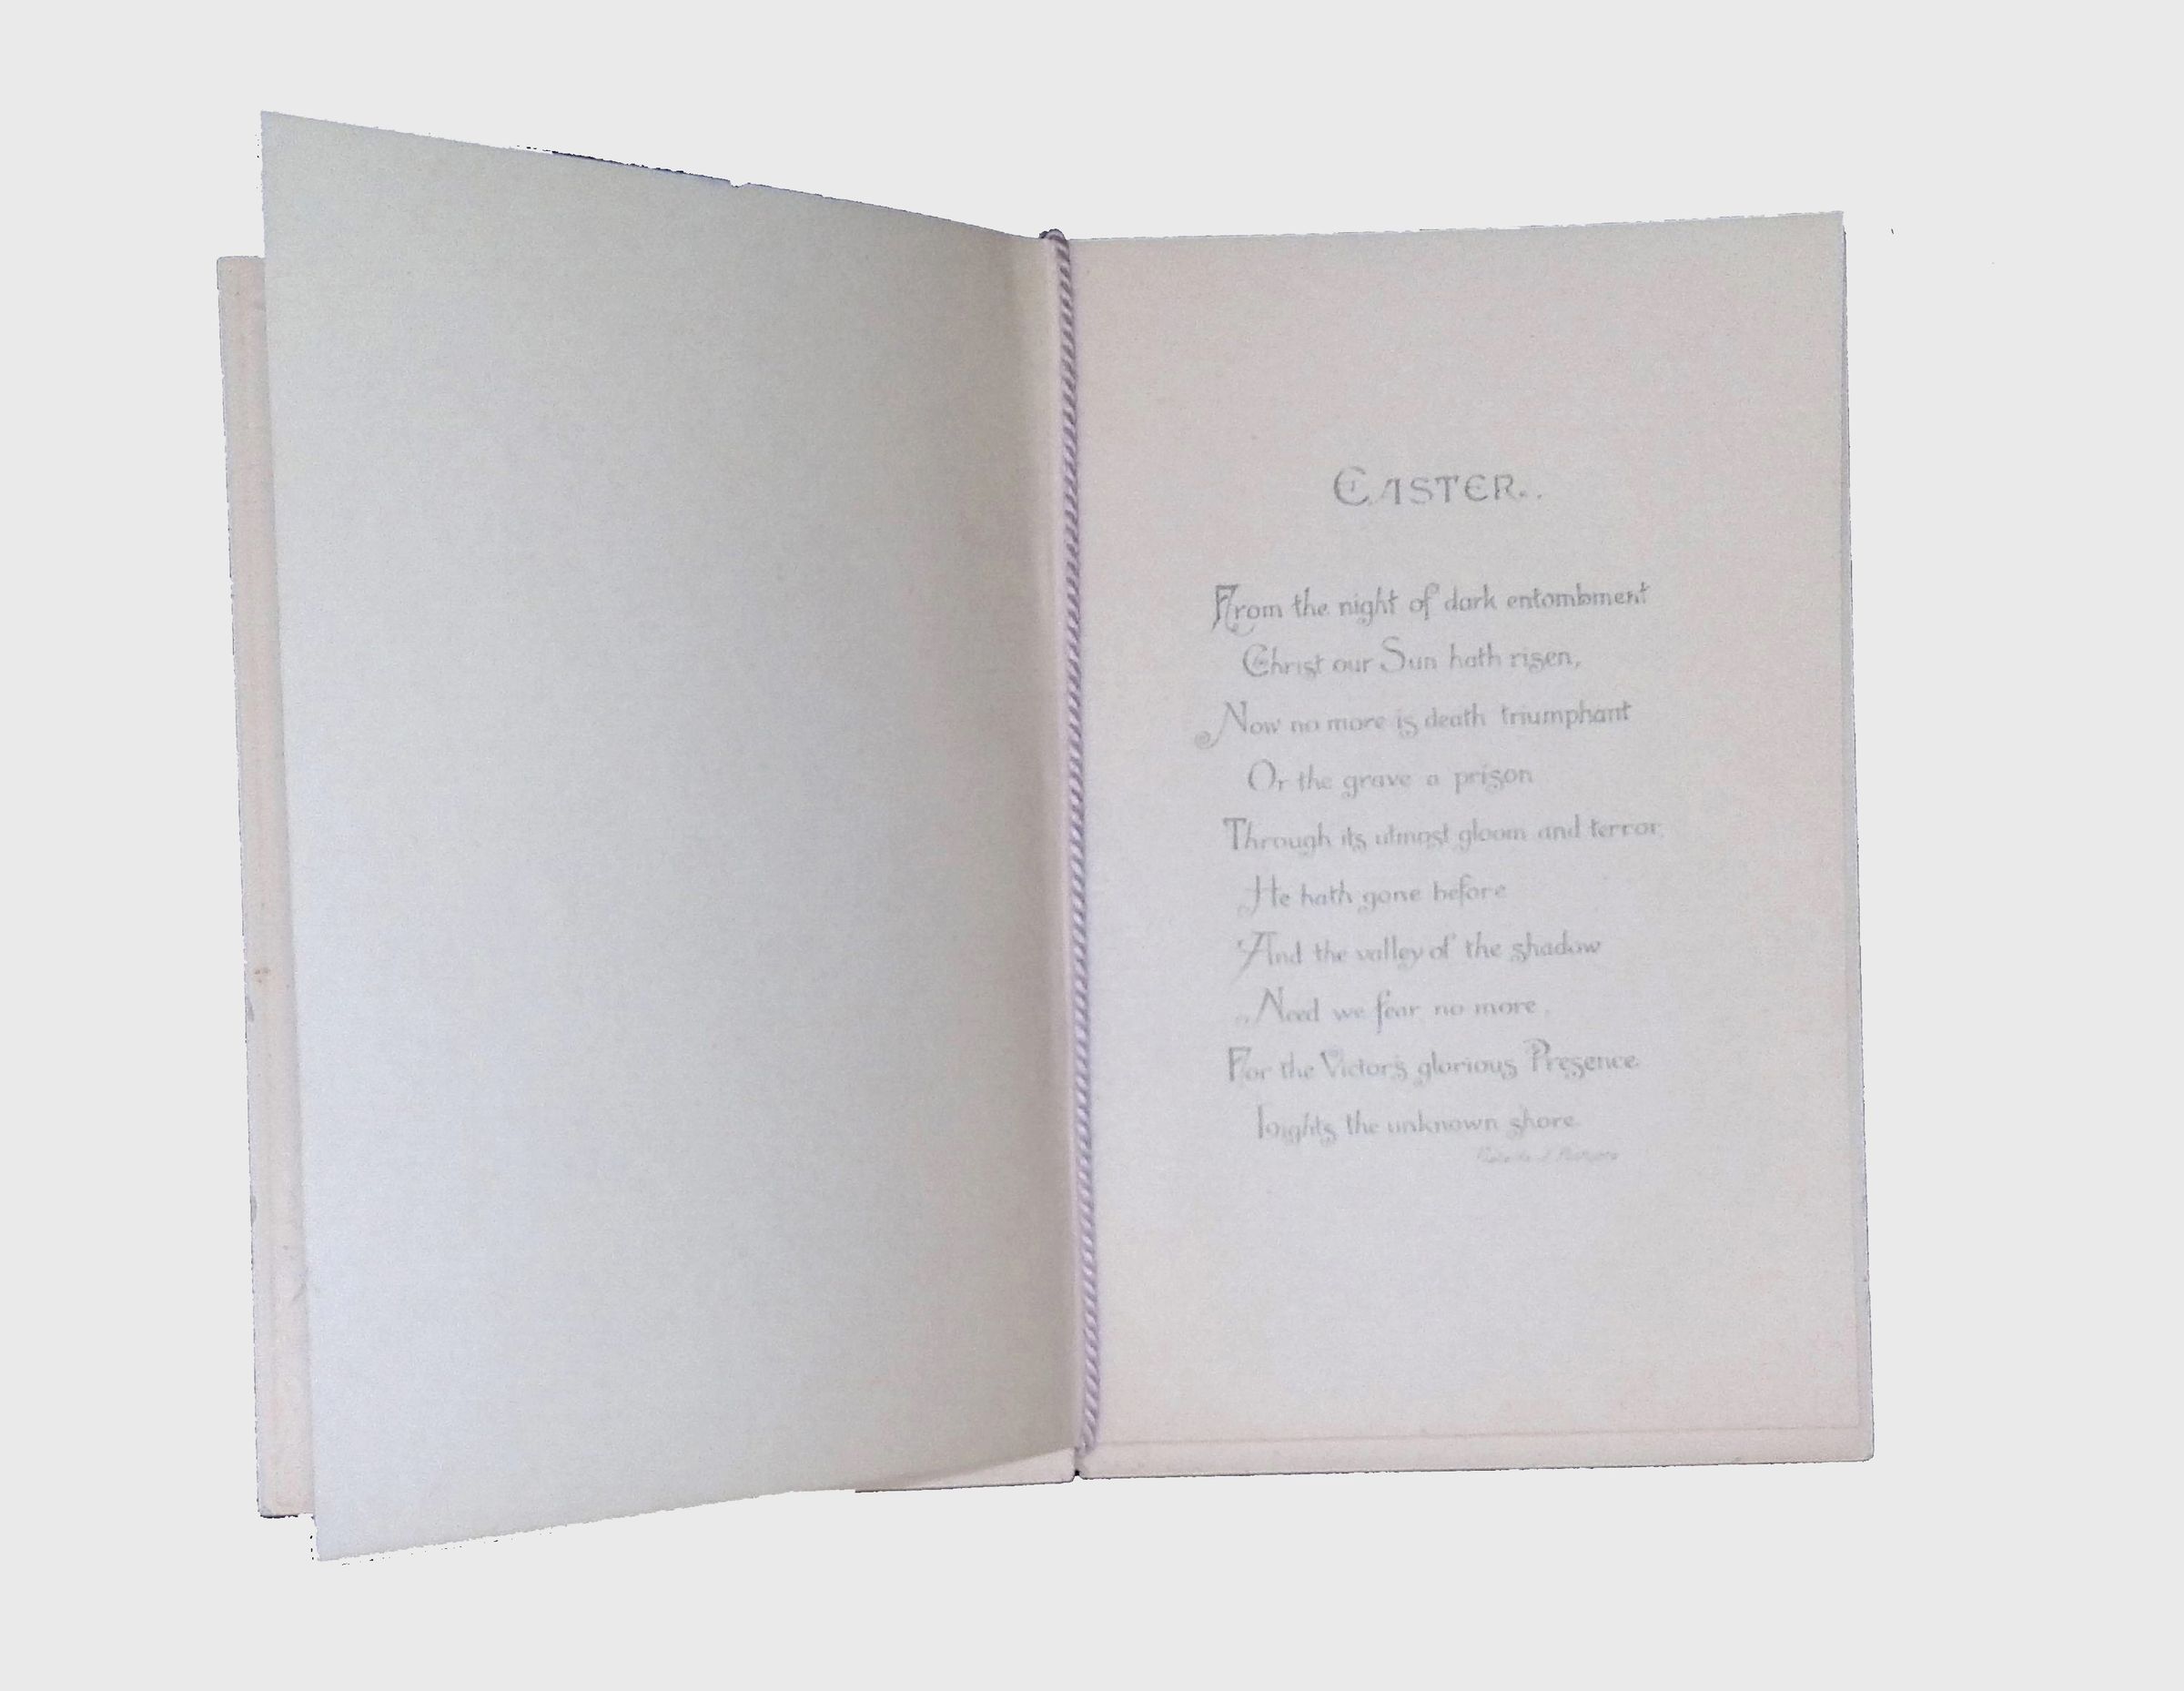 EASTER..
From the night of dark entombment
Christ our Sun hath risen,
Now no more is death triumphant
Or the grave a prison
Through its utmost gloom and terror,
He hath gone before
And the valley of the shadow
Need we fear no more,
For the Victor's glorious Presence
Lights the unknown shore.